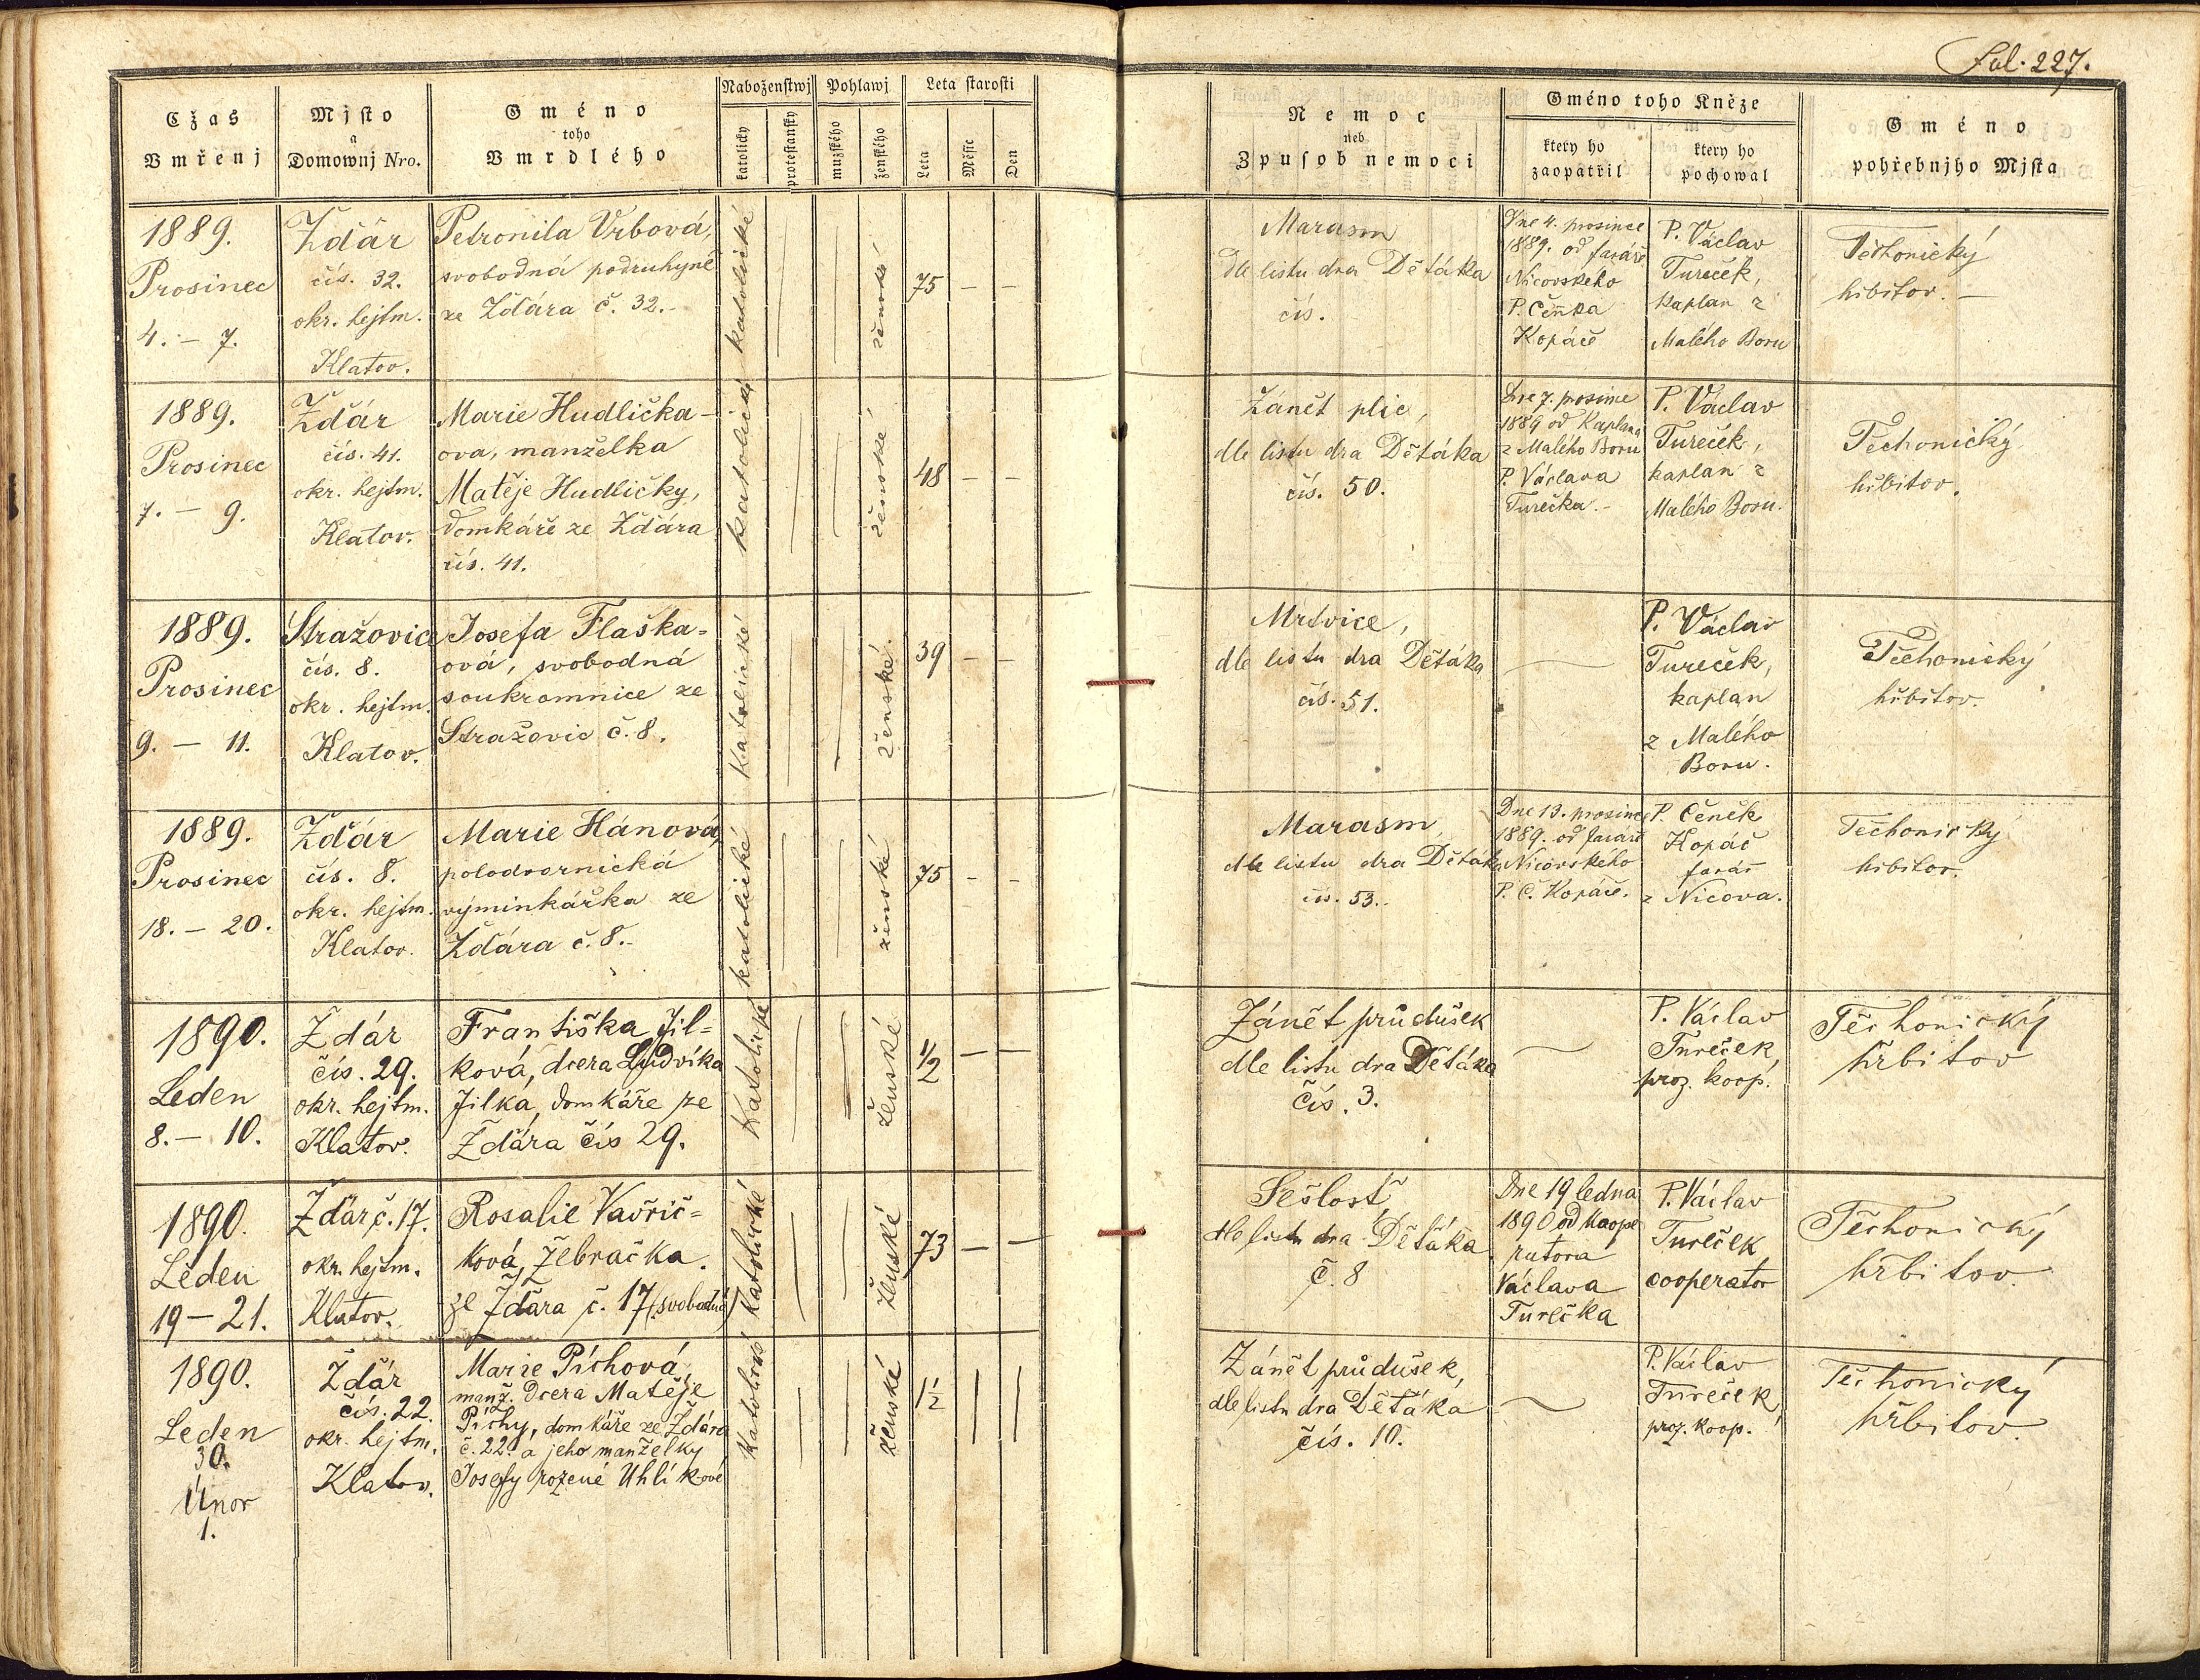 Fol. 227.
Cžas
Vmřenj
Mjsto
a
Domownj Nro.
Gméno
toho
Vmrdlého
Náboženstwj
katolický
protestanský
Pohlawj
mužského
ženského
Leta starosti
Leta
Měsíc
Den
Nemoc
neb
Zpusob nemoci
Gméno toho Kněze
ktery ho
zaopatřil
ktery ho
pochowal
Gméno
pohřebnjho Mjsta
1889.
Prosinec
4. – 7.
Žďár
čís. 32.
okr. hejtm.
Klatov.
Petronila Vrbová,
svobodná podruhyně
ze Žďára č. 32.–
katolické
ženské
75 – –
Marasm
dle listu dra Děťáka
čís.
Dne 4. prosince
1889. od faráře
Nicovského
P. Čeňka
Kopáče
P. Václav
Tureček,
kaplan z
Malého Boru
Těchonický
hřbitov. –
1889.
Prosinec
7. – 9.
Žďár
čís. 41.
okr. hejtm.
Klatov.
Marie Hudlička-
ova, manželka
Matěje Hudličky,
domkáře ze Žďára
čís. 41.
katolické
ženské
48 – –
Zánět plic,
dle listu dra Děťáka
čís. 50.
Dne 7. prosince
1889 od Kaplana
z Malého Boru
P. Václava
Turečka.–
P. Václav
Tureček,
kaplan z
Malého Boru.
Těchonický
hřbitov.
1889.
Prosinec
9. – 11.
Stražovice
čís. 8.
okr. hejtm.
Klatov.
Josefa Flaška=
ová, svobodná
soukromnice ze
Stražovic č. 8.
katolické
ženské
39 – –
Mrtvice,
dle listu dra Děťáka
čís. 51.
P. Václav
Tureček,
kaplan
z Malého
Boru.
Těchonický
hřbitov.
1889.
Prosinec
18. – 20.
Žďár
čís. 8.
okr. hejtm.
Klatov.
Marie Hánová,
polodvornická
výminkářka ze
Žďára č. 8.–
katolické
ženské
75 – –
Marasm,
dle listu dra Děťáka
čís. 53.
Dne 13. prosince
1889. od faráře
Nicovského
P. Č. Kopáče.
P. Čeněk
Kopáč
farář
z Nicova.
Těchonický
hřbitov.
1890.
Leden
8. – 10.
Ždár
čís. 29.
okr. hejtm.
Klatov.
Františka Jil=
ková, dcera Ludvíka
Jilka, domkáře ze
Žďára čís 29.
Katolické
ženské
1/2 – –
Zánět průdušek
dle listu dra Děťáka
Čís. 3.
P. Václav
Tureček,
proz. koop.
Těchonický
hřbitov
1890.
Leden
19 – 21.
Žďár č. 17.
okr. hejtm.
Klatov.
Rosalie Vavřič=
ková, žebračka.
ze Žďára č. 17 (svobodná)
Katolické
ženské
73 – –
Sešlosť
dle listu dra Děťáka
č. 8
Dne 19 ledna
1890 od Kaope
ratora
Václava
Turečka
P. Václav
Tureček
cooperator
Těchonický
hřbitov.
1890.
Leden
30.
Únor
1.
Žďár
čís. 22.
okr. hejtm.
Klatov.
Marie Píchová,
manž. dcera Matěje
Píchy, domkáře ze Žďára
č. 22. a jeho manželky
Josefy rozené Uhlíkové
Katolické
ženské
1 1/2
Zánět průdušek,
dle listu dra Děťáka
čís. 10.
P. Václav
Tureček
proz. koop.
Těchonický
hřbitov.